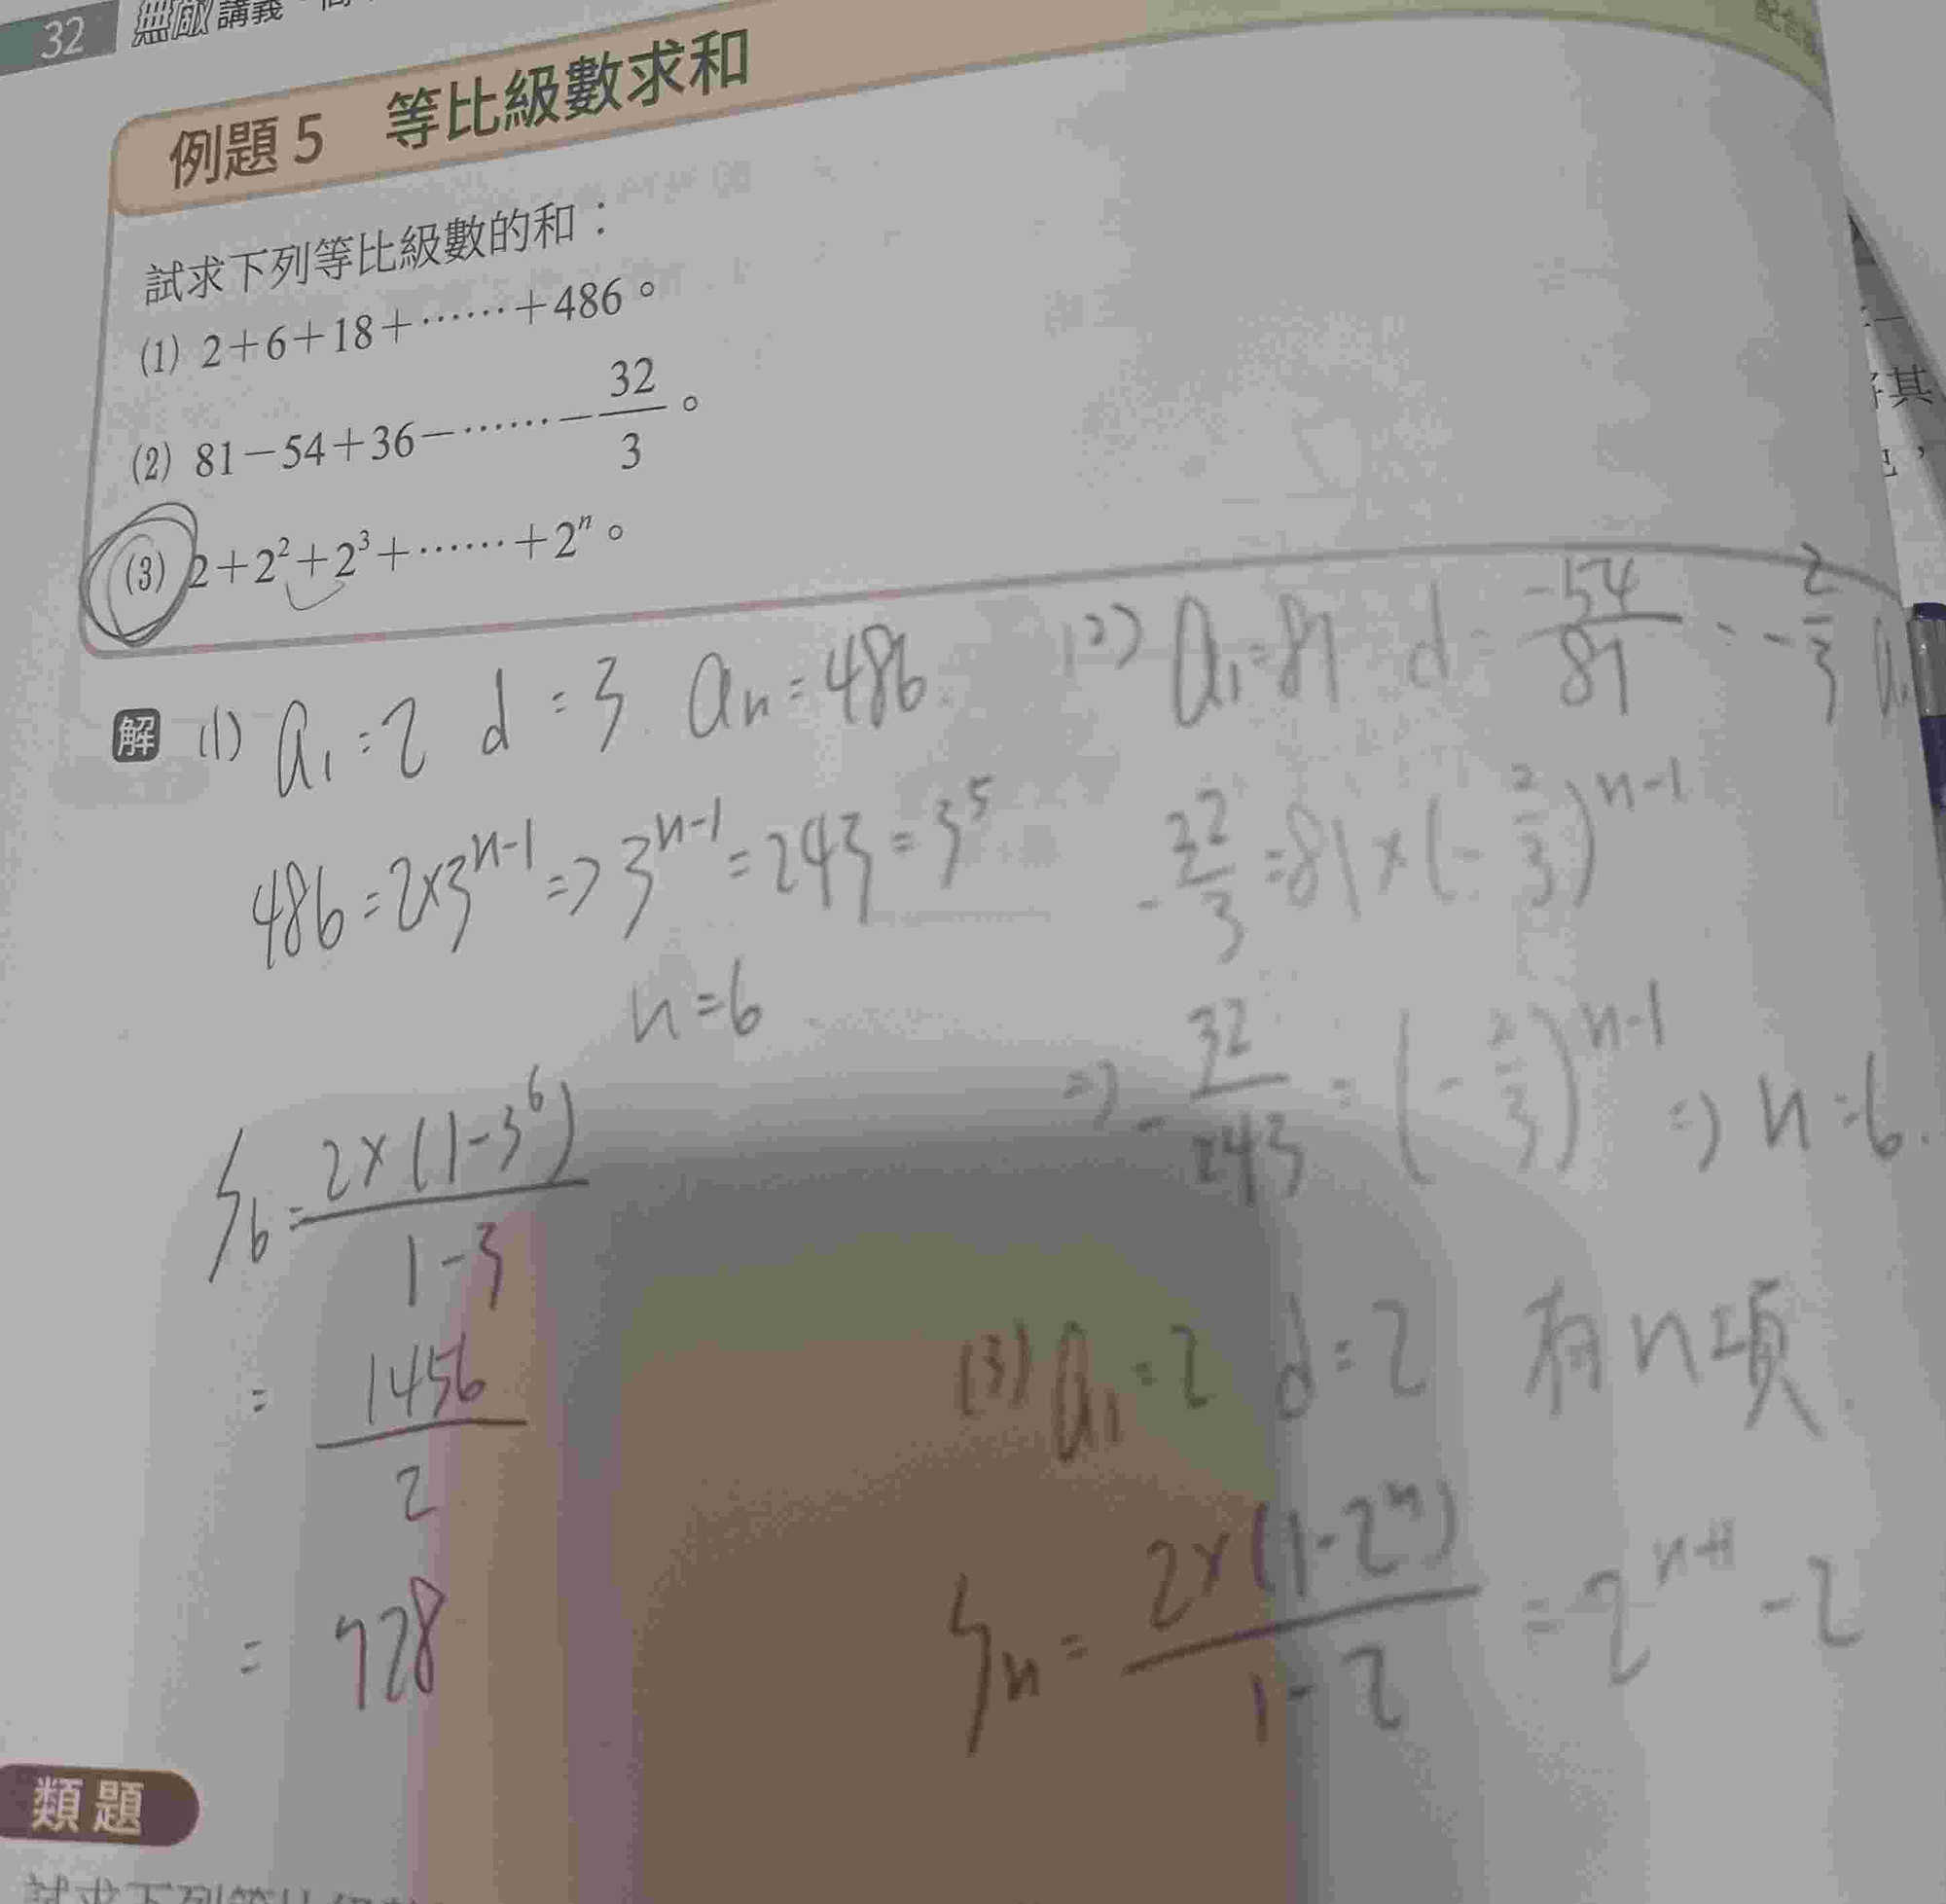 32 無敵講義
例題5 等比級數求和
試求下列等比級數的和：
(1) 2+6+18+⋯⋯+486。
(2) 81−54+36−⋯⋯−32/3。
(3) 2+2²+2³+⋯⋯+2ⁿ。
解 (1) a₁=2 d=3 aₙ=486
486=2×3ⁿ⁻¹ => 3ⁿ⁻¹=243=3⁵
n=6
S₆=2×(1-3⁶)/1-3
=1456/2
=728
(2) a₁=81 d=-54/81=-2/3
-32/3=81×(-2/3)ⁿ⁻¹
=> -32/243=(-2/3)ⁿ⁻¹ => n=6.
(3) a₁=2 d=2 有n項
Sₙ=2×(1-2ⁿ)/1-2=2ⁿ⁺¹-2
類題
試求下列等比級數
其